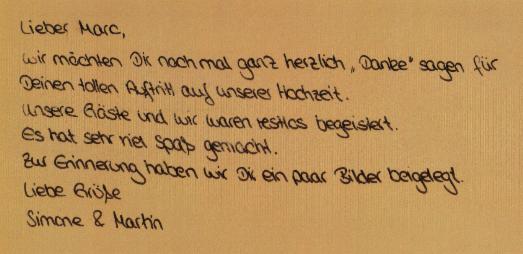 Lieber Marc,
wir möchten Dir nochmal ganz herzlich „Danke" sagen für
Deinen tollen Auftritt auf unserer Hochzeit.
Unsere Gäste und wir waren restlos begeistert.
Es hat sehr viel Spaß gemacht.
Zur Erinnerung haben wir Dir ein paar Bilder beigelegt.
Liebe Grüße
Simone & Martin